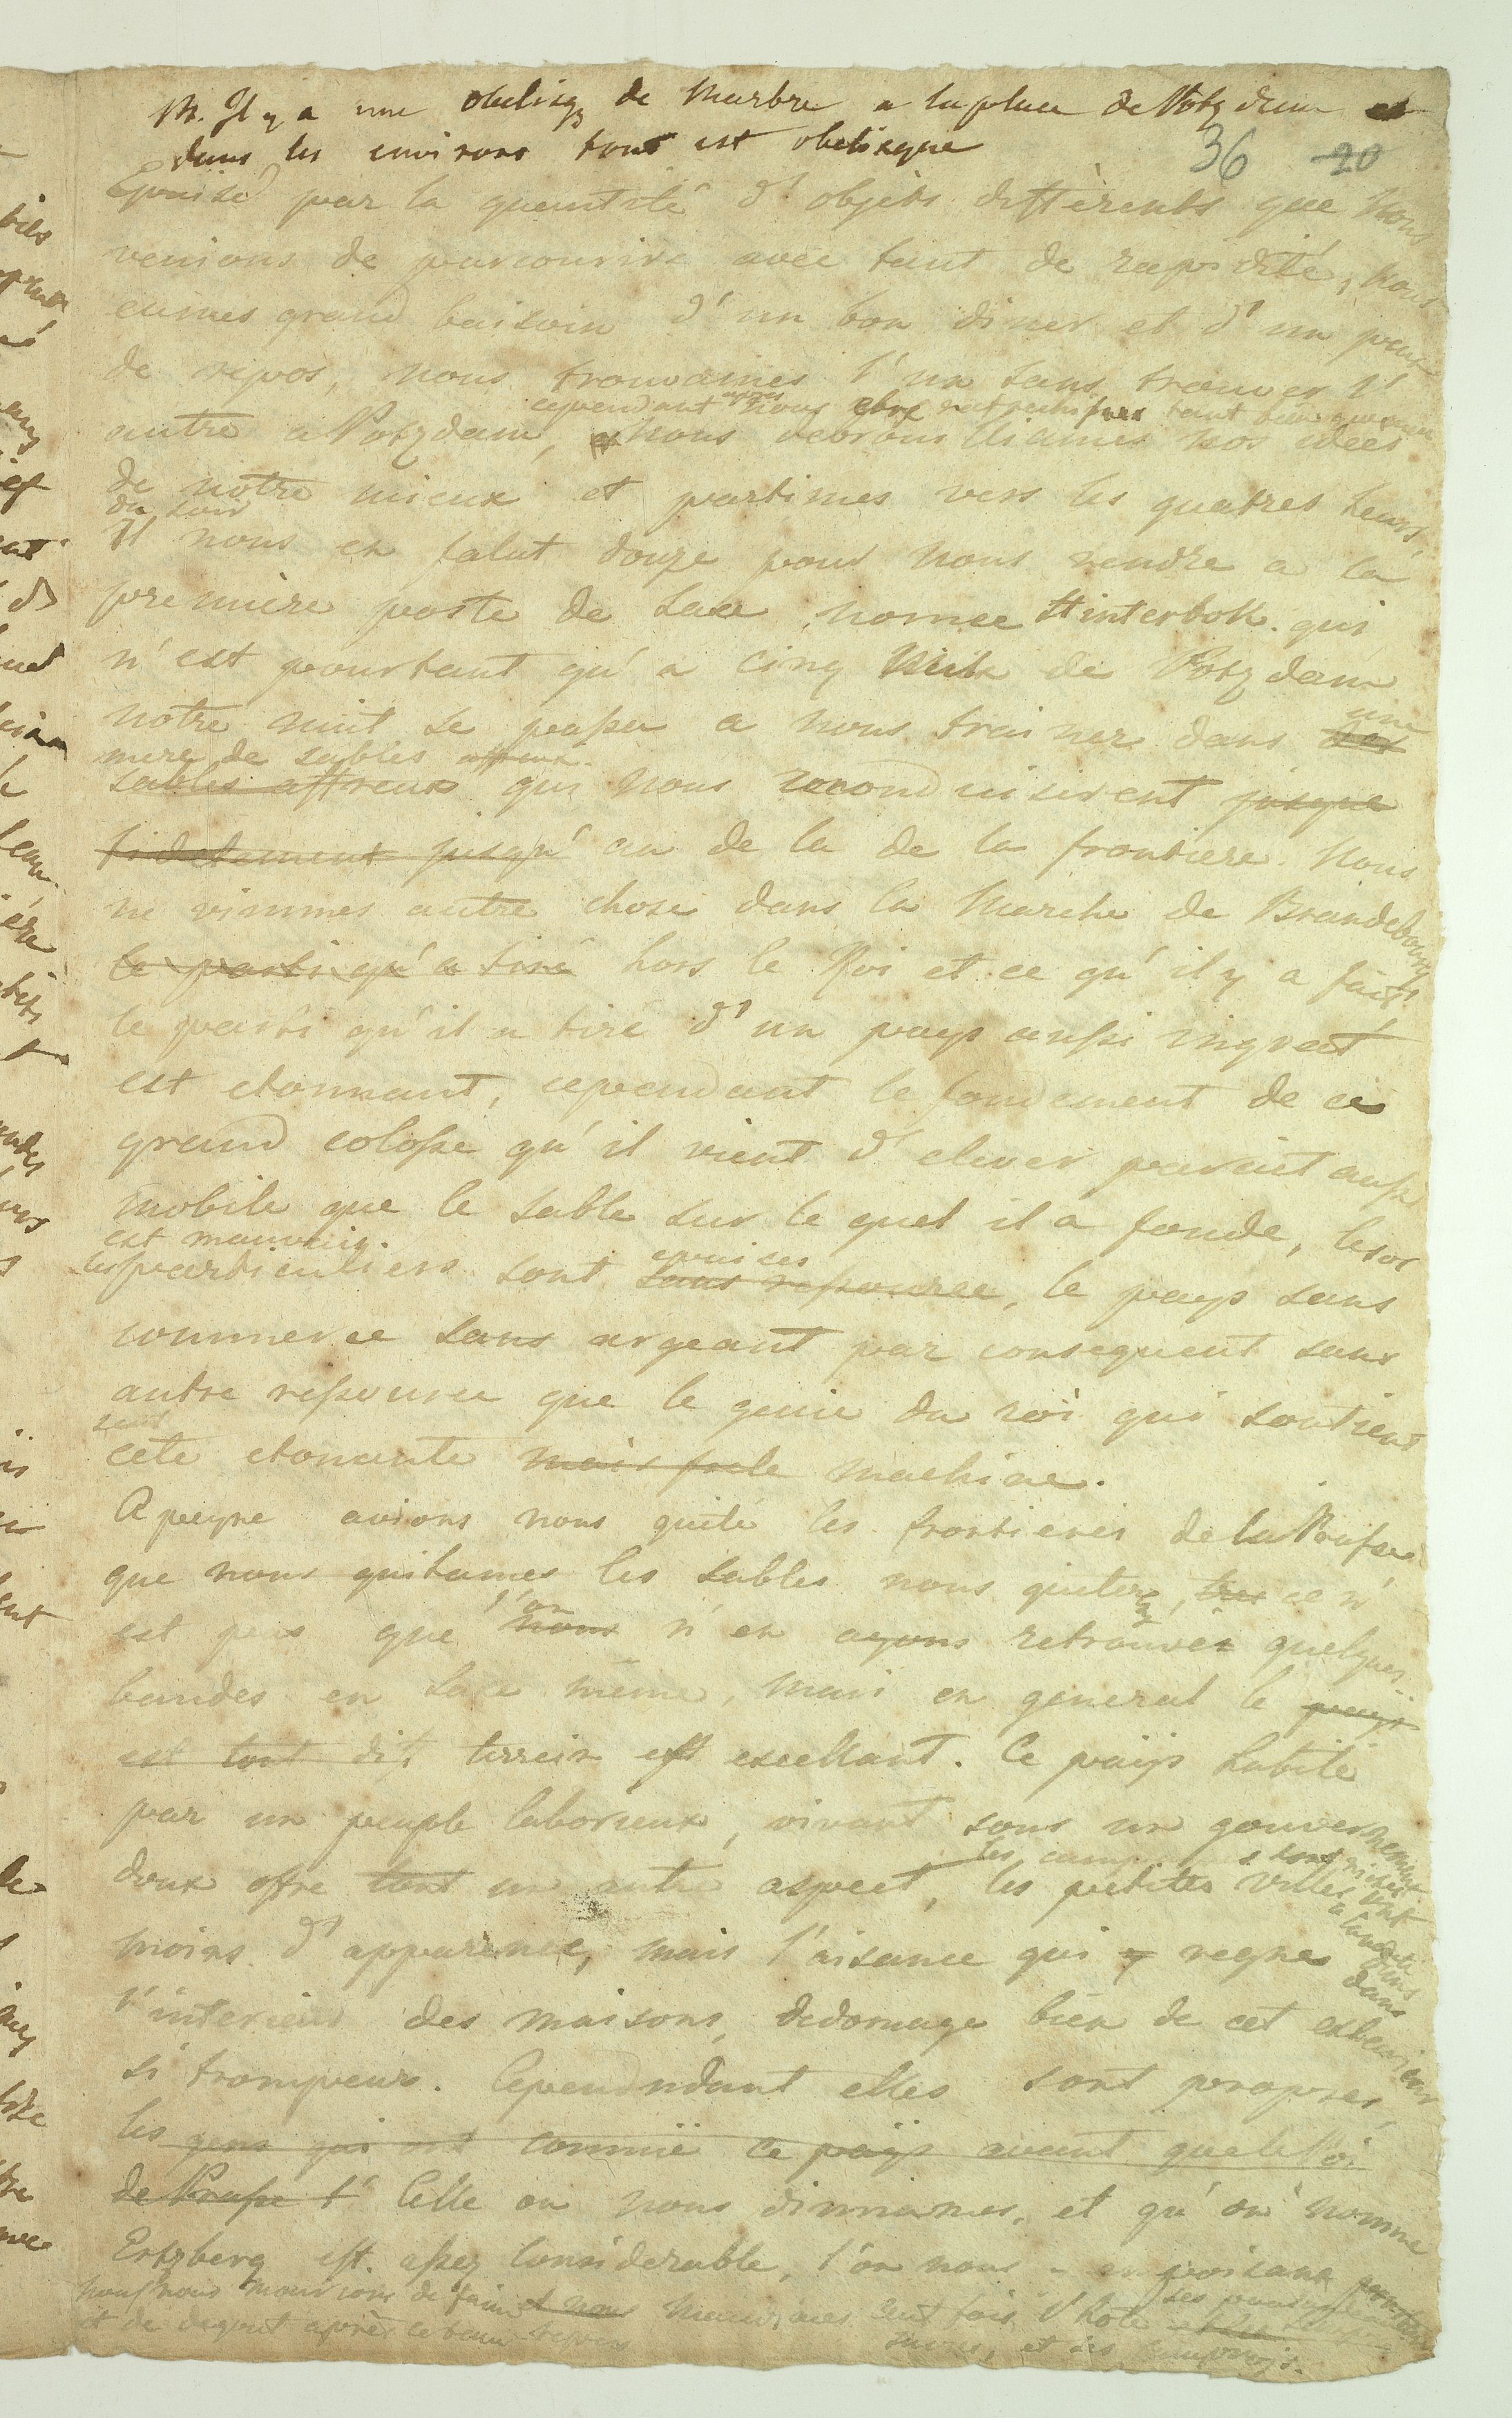 M. Il y a une obelisq; de Marbre a la place de Potzdam et
dans les environs tout est obelisque
36 20
Epuisé par la quantité d'objets differents que Nous
venions de parcourire avec tant de rapidité, nous
eumes grand baisoin d'un bon diner et d'un peux
de repos, nous trouvames l'un sans trouver l'
cependant apres nous etre tant bien que
autre a Potzdam, nous debrouilliames nos idées
de notre mieux et partimes vers les quatres heurs,
du soir
Il nous en falut douze pour nous rendre a la
premiere poste de Saxe nomee Hinterbok. qui
n'est pourtant qu'a cinq Meile de Potzdam
notre nuit se passa a nous trainer dans des
une
mere de sables affreux.
sables affreux qui nous reconduisirent jusque
fidelement jusqu' au de la de la frontiere. Nous
ne vimmes autre chose dans la Marche de Brandebourg
le parti qu'a tiré hors le Roi et ce qu'il y a fait,
le parti qu'il a tiré d'un pays aussi ingrat
est etonnant, cependant le fondement de ce
grand colosse qu'il vient d'elever parait aussi
mobile que le sable sur le quel il a fonde, le sol
est mauvais.
les particuliers sont sans ressource, le pays sans
epuises
commerce sans argeant par consequent sans
autre ressource que le genie du roi qui soutient
seul
cete etonante mais frele machine.
A peyne avions nous quité les frontieres de la Prusse
que nous quitames les sables nous quiter, ce n'
est pas que nous n'en ayons retrouvér quelques
l'on
bandes en Saxe meme, mais en general le pays
est tout dit, terrein est excellant. Ce païs habité
par un peuple laborieux, vivant sous un gouvernement
les sont
doux ofre tout un autre aspect, les petites villes ont
moins d'apparence, mais l'aisance qui y regne
dans
l'interieur des maisons, dedomage bien de cet exterieur
si trompeur. Cependndant elles sont propres,
les gens qui ont connüe ce païs avant que le Roi
de Prusse l' Celle ou nous dinnames, et qu'on nomme
Ertzberg est assez considerable, l'on nous
nous nous mourions de faim et nous cent fois l'hote
et de degout après ce beau repas
sucre, et ses